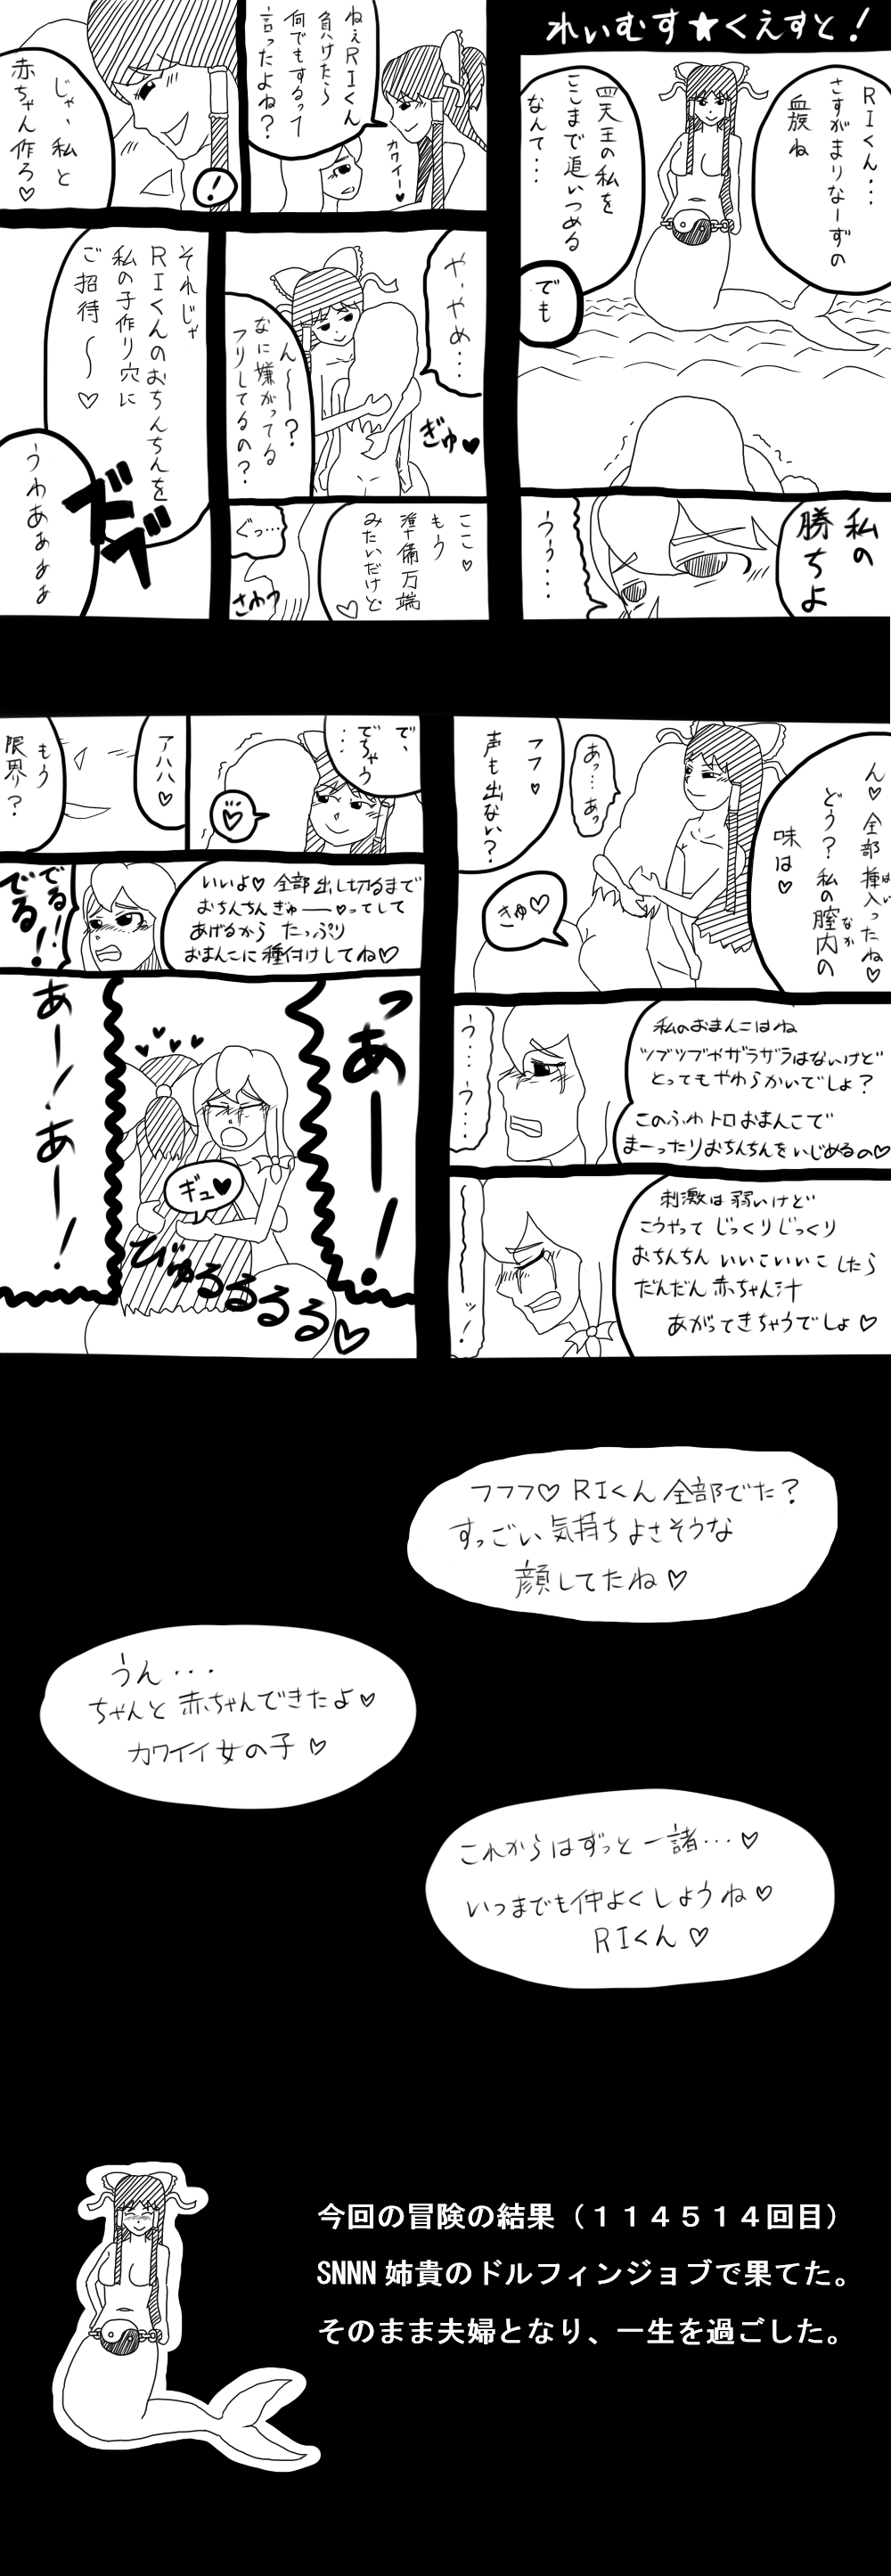 れいむす★くえすと！
RIくん・・・
さすがまりなーずの
血族ね
四天王の私を
ここまで追いつめる
なんて・・・
でも
私の
勝ちよ
うぅ・・・
ねぇRIくん
負けたら
何でもするって
言ったよね？
カワイー♥
じゃ、私と
赤ちゃん作ろ♡
！
や、やめ・・・
ぎゅ♥
ん～～？
なに嫌がってる
フリしてるの？
ここ♡
もう
準備万端
みたいだけど♡
ぐっ・・・
さわっ
それじゃ
RIくんのおちんちんを
私の子作り穴に
ご招待～♡
ズブ
うわあぁぁぁ
ん♡全部挿入ったね♡
はい
どう？私の膣内の
なか
味は♡
あっ…あっ
フフ♡
声も出ない？
きゅ♡
私のおまんこはね
ツブツブやザラザラはないけど
とってもやわらかいでしょ？
このふわトロおまんこで
まーったりおちんちんをいじめるの♡
う・・・う・・・
刺激は弱いけど
こうやってじっくりじっくり
おちんちんいいこいいこしたら
だんだん赤ちゃん汁
あがってきちゃうでしょ♡
ーーッ！
で、
でちゃう
・・・
アハハ♡
もう
限界？
いいよ♡全部出し切るまで
おちんちんぎゅーー♡ってして
あげるからたっぷり
おまんこに種付けしてね♡
でる！
でる！！
っあーー！
ギュ♥
あー！あー！
びゅるるるる♡
フフフ♡RIくん全部でた？
すっごい気持ちよさそうな
顔してたね♡
うん・・・
ちゃんと赤ちゃんできたよ♡
カワイイ女の子♡
これからはずっと一諸・・・♡
いつまでも仲よくしようね♡
RIくん♡
今回の冒険の結果（１１４５１４回目）
SNNN姉貴のドルフィンジョブで果てた。
そのまま夫婦となり、一生を過ごした。